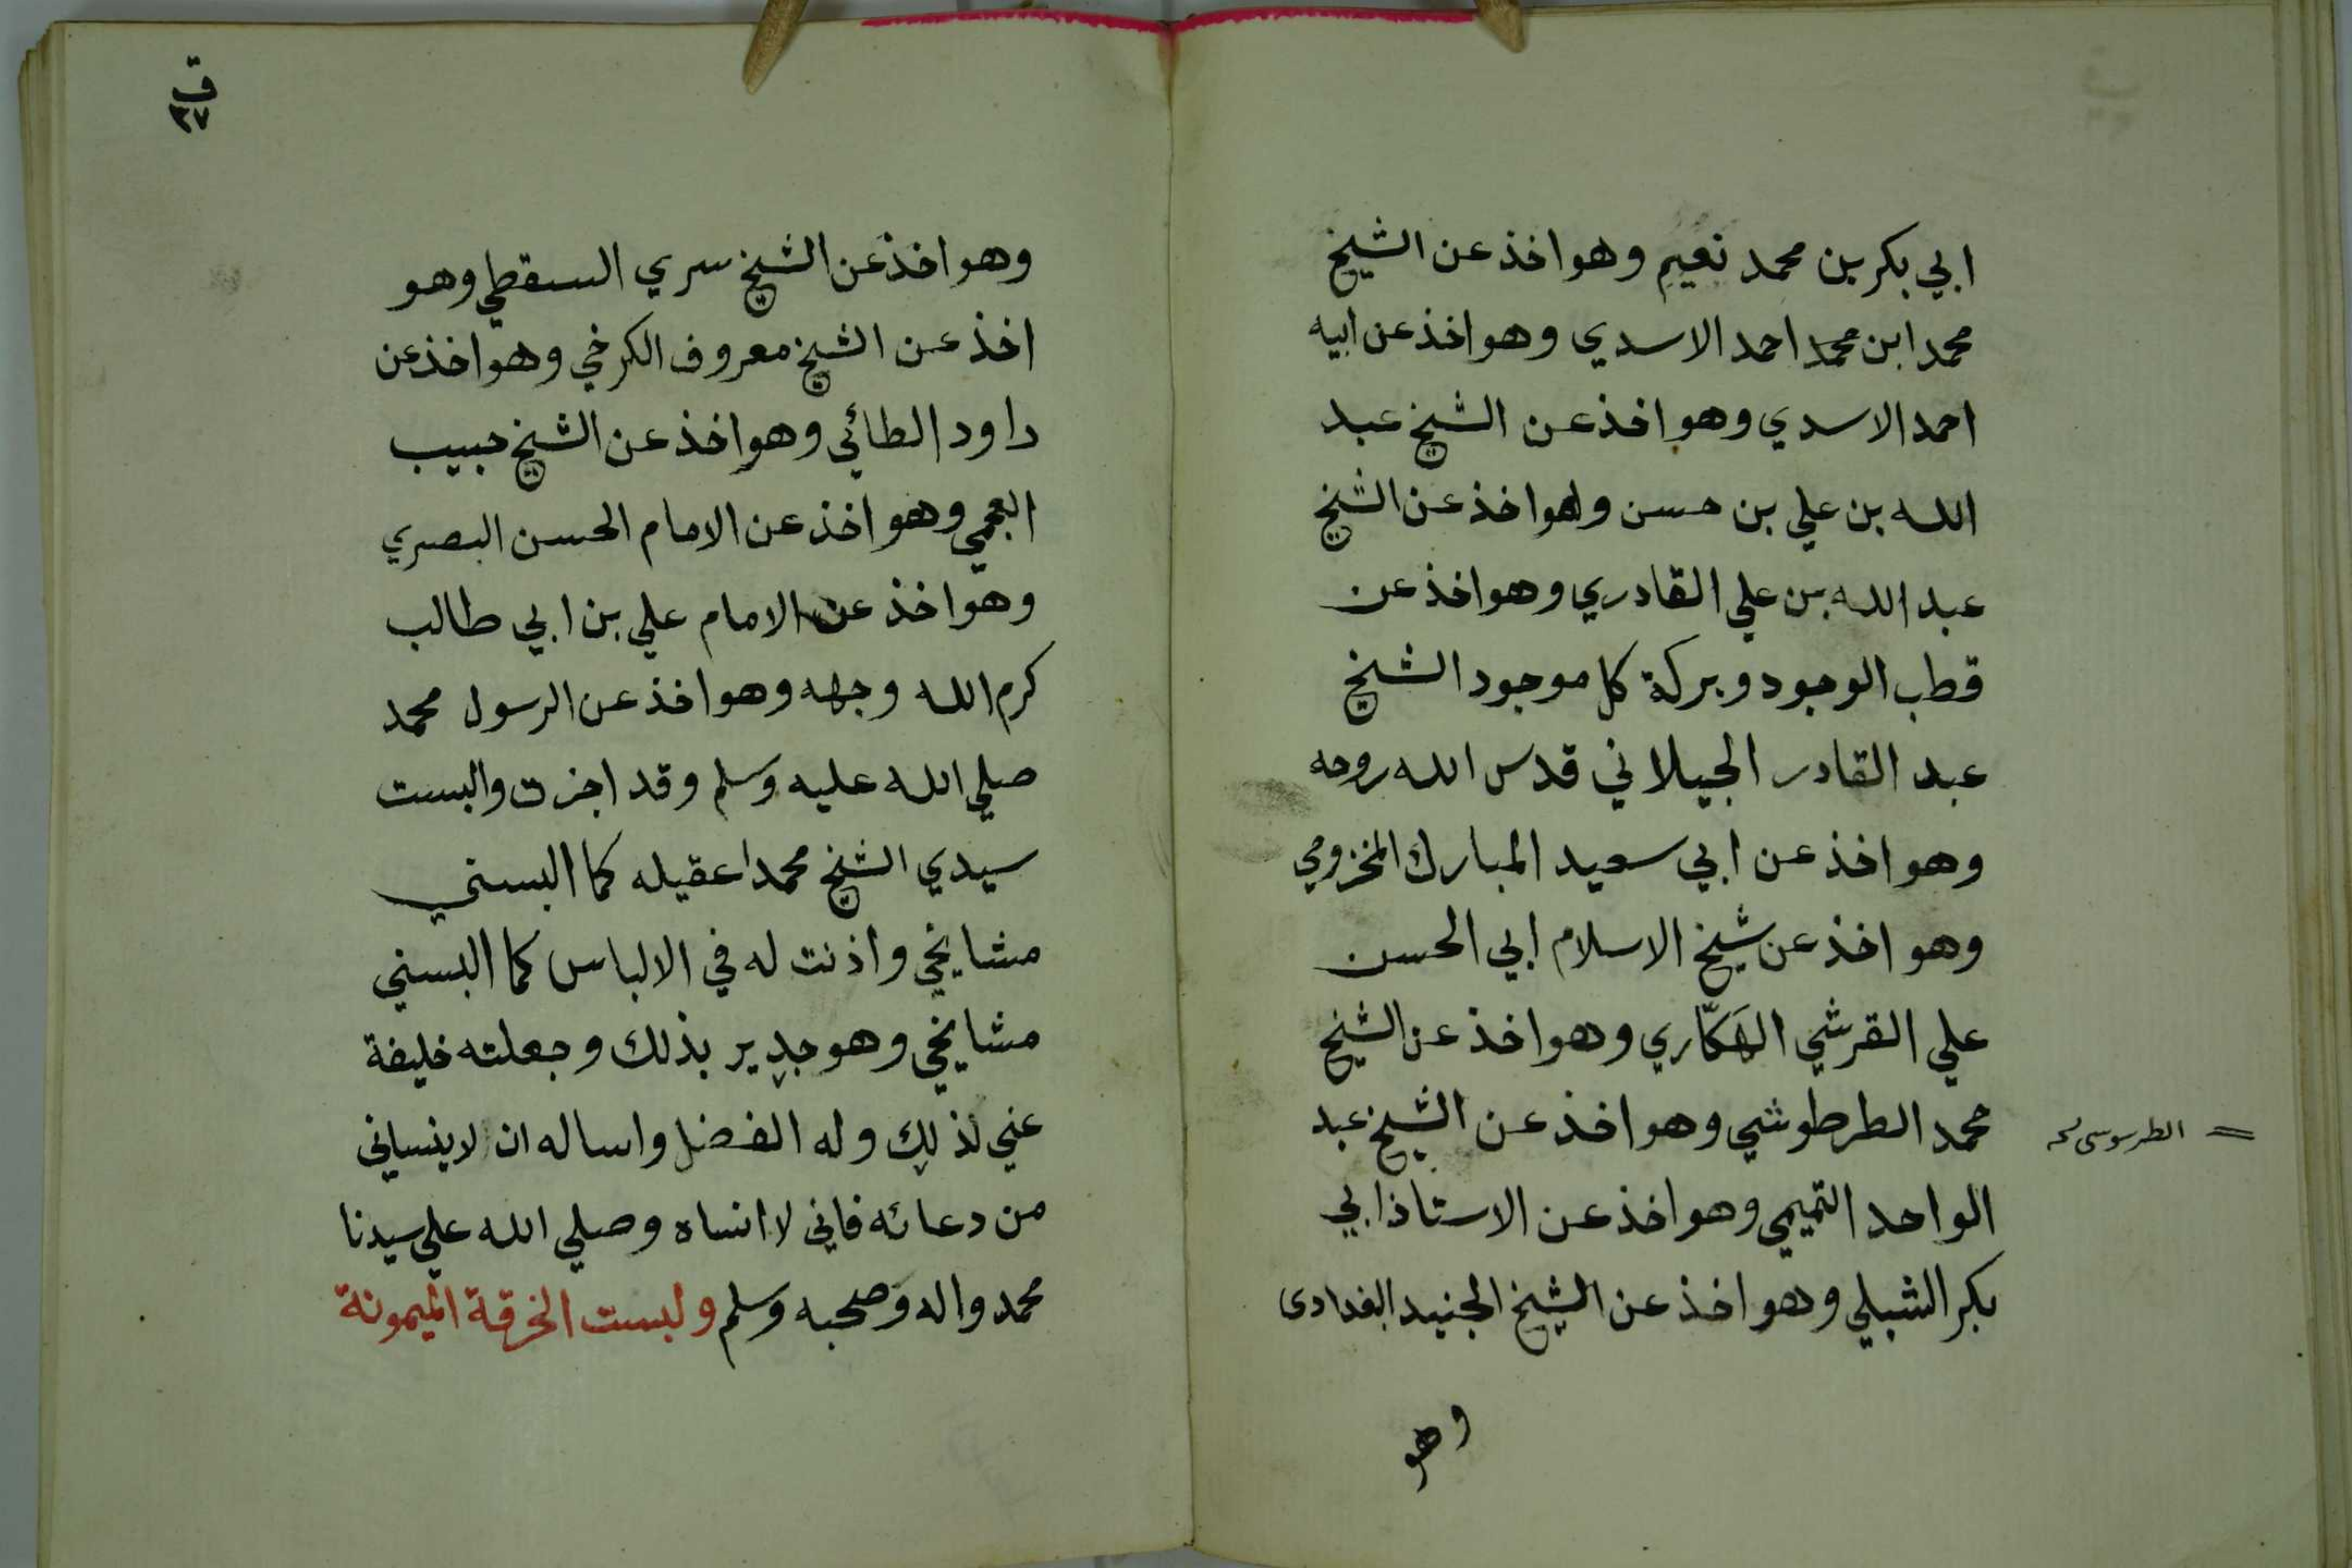 ابي بكر بن محمد نعيم وهو اخذ عن الشيخ
محمد ابن محمد احمد الاسدي وهو اخذ عن ابيه
احمد الاسدي وهو اخذ عن الشيخ عبد
الله بن علي بن حسن وهو اخذ عن الشيخ
عبد الله بن علي القادري وهو اخذ عن
قطب الوجود وبركة كل موجود الشيخ
عبد القادر الجيلاني قدس الله روحه
وهو اخذ عن ابي سعيد المبارك المخزومي
وهو اخذ عن شيخ الاسلام ابي الحسن
علي القرشي الهكّاري وهو اخذ عن الشيخ
محمد الطرطوشي وهو اخذ عن الشيخ عبد
= الطرسوسى
الواحد التميمي وهو اخذ عن الاستاذ ابي
بكر الشبلي وهو اخذ عن الشيخ الجنيد البغدادى
وهو
ق
٣٧
وهو اخذ عن الشيخ سري السقطي وهو
اخذ عن الشيخ معروف الكرخي وهو اخذ عن
داود الطائي وهو اخذ عن الشيخ حبيب
العجمي وهو اخذ عن الامام الحسن البصري
وهو اخذ عن الامام علي بن ابي طالب
كرم الله وجهه وهو اخذ عن الرسول محمد
صلي الله عليه وسلم وقد اجزت والبست
سيدي الشيخ محمدا عقيله كما البسني
مشايخي واذنت له في الالباس كما البسني
مشايخي وهو جدير بذلك وجعلته خليفة
عني لذلك وله الفضل واساله ان لا ينساني
من دعائه فاني لا انساه وصلي الله علي سيدنا
محمد واله وصحبه وسلم ولبست الخرقة الميمونة